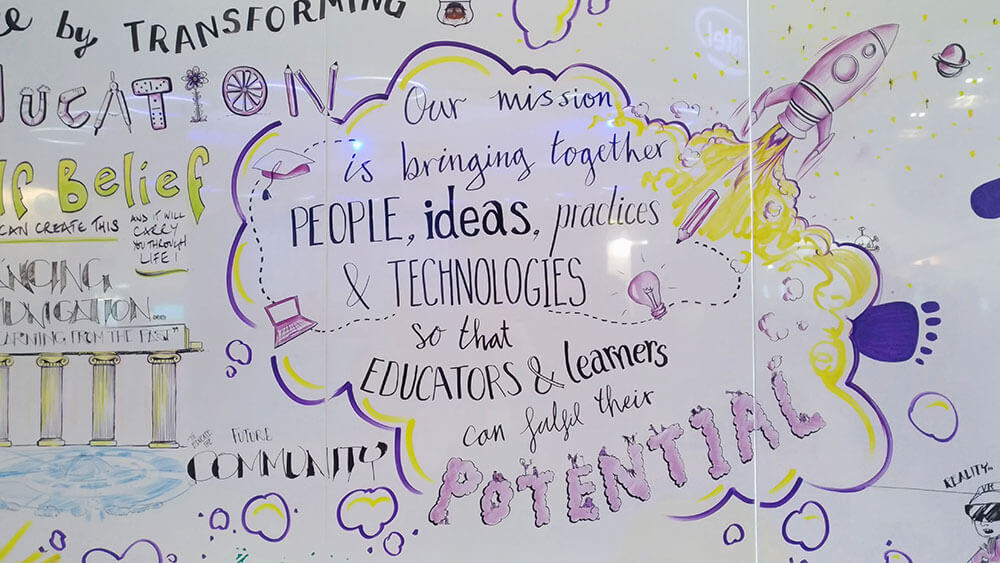 e by TRANSFORMING
DUCATION
lf Belief
CAN CREATE THIS
AND IT WILL
CARRY
YOU THROUGH
LIFE!
ANCING
MUNICATION...
EARNING FROM THE PAST"
FUTURE
COMMUNITY
Our mission
is bringing together
PEOPLE, ideas, practices
& TECHNOLOGIES
so that
EDUCATORS & learners
can fulfil their
POTENTIAL
intel
REALITY...
VR